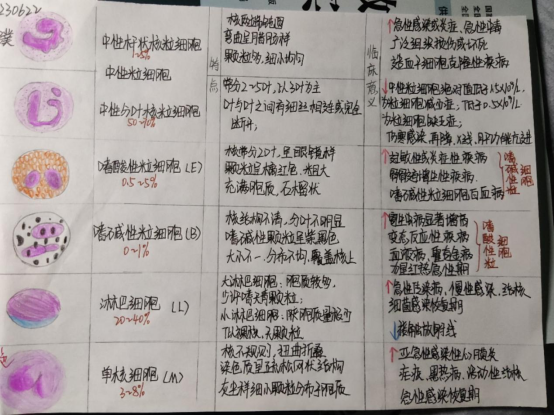 230622
中性杆状核粒细胞
1~5%
中性粒细胞
中性分叶核粒细胞
50~70%
特
点
弯曲呈月牙样
颗粒均细小均匀
带分2~5叶,以3叶为主
叶与叶之间有细丝相连或完全
断开
临
床
意
义
↑急性感染或炎症、急性中毒
广泛组织损伤或坏死
↓中性粒细胞绝对值低于1.5×10⁹/L
为粒细胞减少症,低于0.5×10⁹/L
为粒细胞缺乏症;
嗜酸性粒细胞(E)
0.5~5%
核常分2叶,呈眼镜样
颗粒呈橘红色,粗大
充满胞质,石榴状
↑过敏性或炎症性疾病
嗜酸性粒细胞白血病
嗜
碱
性
粒
细
胞
嗜碱性粒细胞(B)
0~1%
核轮廓不清,分叶不明显
嗜碱性颗粒呈紫黑色
大小不一,分布不均,覆盖核上
变态反应性疾病
血液病
猩红热急性期
嗜
酸
性
粒
细
胞
淋巴细胞(L)
20~40%
大淋巴细胞:胞质较多,
少许嗜天青颗粒;
小淋巴细胞:胞质量较少
无颗粒
↑急性传染病,慢性感染,结核,
细菌感染恢复期
↓接触放射线
单核细胞(M)
3~8%
核不规则,扭曲折叠
染色质呈疏松网状结构
灰尘样细小颗粒分布于胞质
↑亚急性感染性心内膜炎
疟疾,黑热病,活动性结核
急性感染恢复期